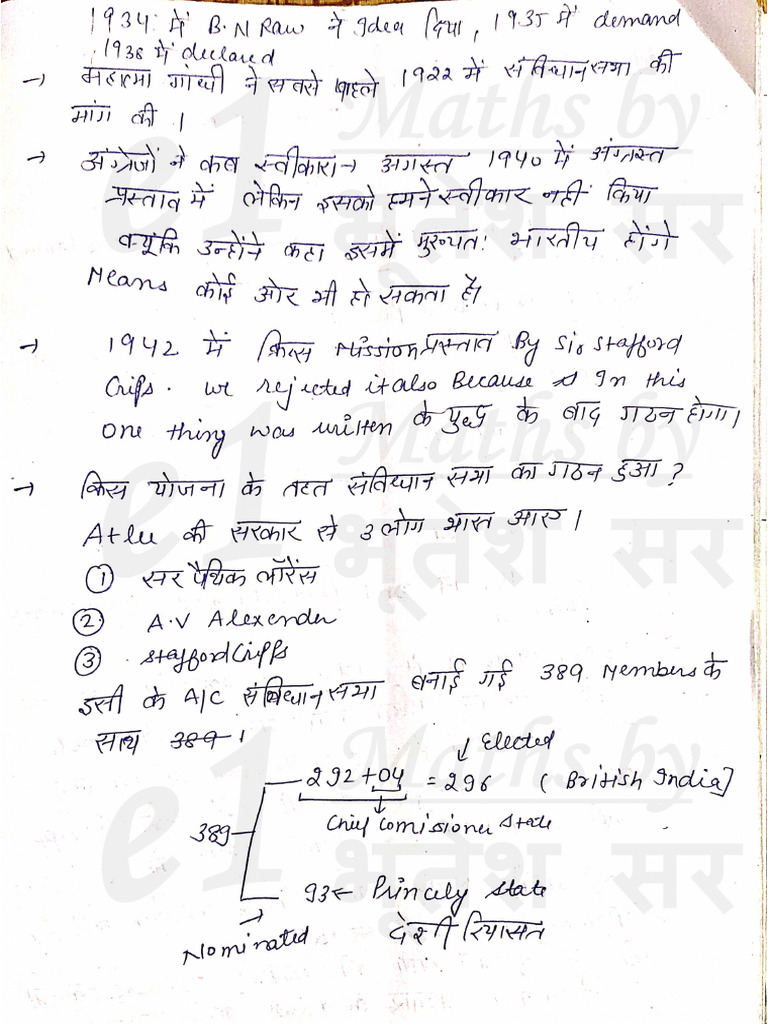 1934 में B.N Raw ने Idea दिया, 1935 में demand
1938 में declared
→ महात्मा गांधी ने सबसे पहले 1922 में संविधान सभा की
मांग की ।
→ अंग्रेजों ने कब स्वीकारा → अगस्त 1940 में अगस्त
प्रस्ताव में लेकिन इसको हमने स्वीकार नहीं किया
क्यूंकि उन्होंने कहा इसमें मुख्यतः भारतीय होंगे
Means कोई ओर भी हो सकता है।
→ 1942 में क्रिप्स Mission प्रस्ताव By Sir Stafford
Crips. we rejected it also Because In this
one thing was written के युद्ध के बाद गठन होगा।
→ किस योजना के तहत संविधान सभा का गठन हुआ ?
Atlee की सरकार से 3 लोग भारत आए ।
① सर पैथिक लॉरेंस
② A.V Alexender
③ Stafford Cripps
इसी के A/C संविधान सभा बनाई गई 389 Members के
साथ 389 ।
↓ Elected
292 + 04 = 296 ( British India]
Chief Comissioner State
389
93 ← Princely State
→ देशी रियासत
Nominated
e1 Maths by
भूतेश सर
e1 Maths by
भूतेश सर
e1 Maths by
भूतेश सर